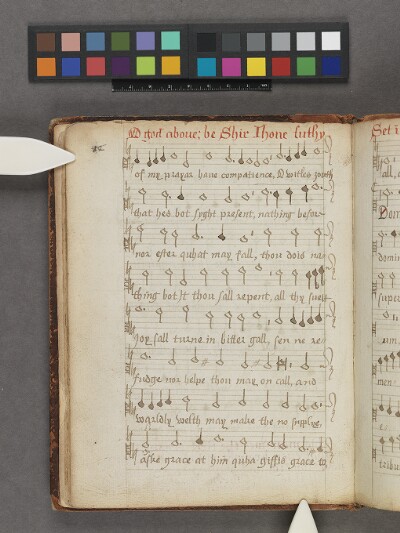 O god aboue; be Shir Ihone futhy
of my prayar haue compatience, O witles youth
that hes bot syght present, nathing befor
nor efter quhat may fall, thou dois na
thing bot it thou sall repent, all thy suet
Ioy sall turne in bitter gall, sen no re
fudge nor helpe thou may on call, and
warldly welth may make the no supplye,
aske grace at him quha giffis grace to
Set i
all,
Dom
domin
super
um,
men
e
tribu